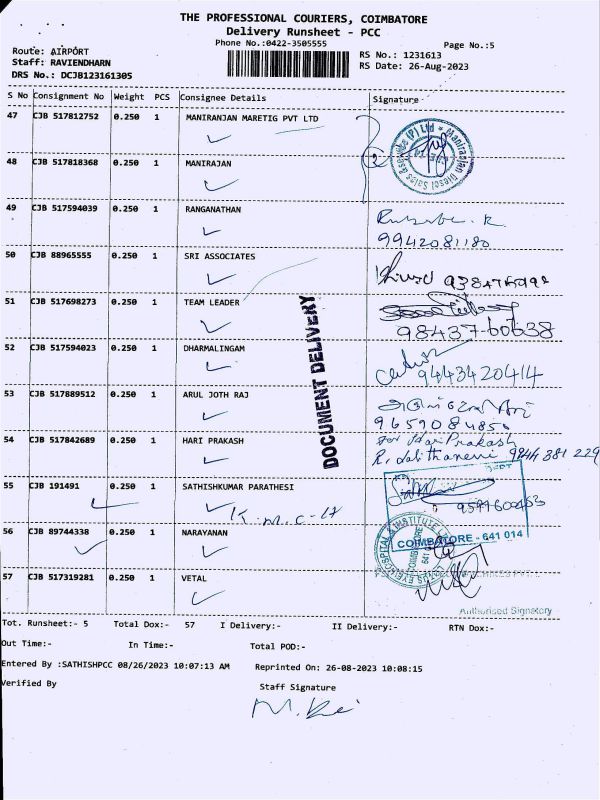 THE PROFESSIONAL COURIERS, COIMBATORE
Delivery Runsheet - PCC
Phone No.:0422-3505555
Page No.:5
Route: AIRPORT
Staff: RAVIENDHARN
DRS No.: DCJB123161305
RS No.: 1231613
RS Date: 26-Aug-2023
S No Consignment No Weight PCS Consignee Details Signature
47 CJB 517812752 0.250 1 MANIRANJAN MARETIG PVT LTD
48 CJB 517818368 0.250 1 MANIRAJAN
2
49 CJB 517594039 0.250 1 RANGANATHAN
9942081180
50 CJB 88965555 0.250 1 SRI ASSOCIATES
51 CJB 517698273 0.250 1 TEAM LEADER
98437-60638
DOCUMENT DELIVERY
52 CJB 517594023 0.250 1 DHARMALINGAM
9443420414
53 CJB 517889512 0.250 1 ARUL JOTH RAJ
54 CJB 517842689 0.250 1 HARI PRAKASH
for Hari Prakash
9844 381 229
55 CJB 191491 0.250 1 SATHISHKUMAR PARATHESI
K.M.C-47
COIMBATORE - 641 014
56 CJB 89744338 0.250 1 NARAYANAN
57 CJB 517319281 0.250 1 VETAL
Authorised Signatory
Tot. Runsheet:- 5 Total Dox:- 57 I Delivery:- II Delivery:- RTN Dox:-
Out Time:- In Time:- Total POD:-
Entered By :SATHISHPCC 08/26/2023 10:07:13 AM Reprinted On: 26-08-2023 10:08:15
Verified By
Staff Signature